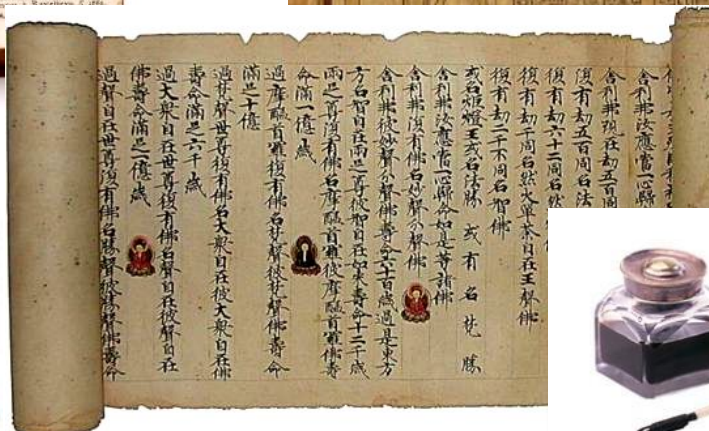 舍利弗汝應當一心歸
舍利弗現在劫五百同
復有劫五百同名法
復有劫六十二同名然
復有劫千同名然火單荼自在王聲佛
復有劫二千不同名智佛
或名炬燈王或名法勝 或有名梵勝
舍利弗汝應當一心歸命如是等諸佛
舍利弗復有佛名妙聲分聲佛
舍利弗彼妙聲分聲佛壽命六十百歲過是東方
方名智自在兩足尊彼智自在尊壽命十二千歲
兩足尊復有佛名摩醯首羅彼摩醯首羅佛壽
命滿一億歲
過摩醯首羅復有佛名梵聲彼梵聲佛壽命
滿足十億
過梵聲世尊復有佛名大衆自在彼大衆自在佛
壽命滿足六千歲
過大衆自在世尊復有佛名聲自在彼聲自在
佛壽命滿足一億歲
過聲自在世尊復有佛名勝聲彼勝聲佛壽命